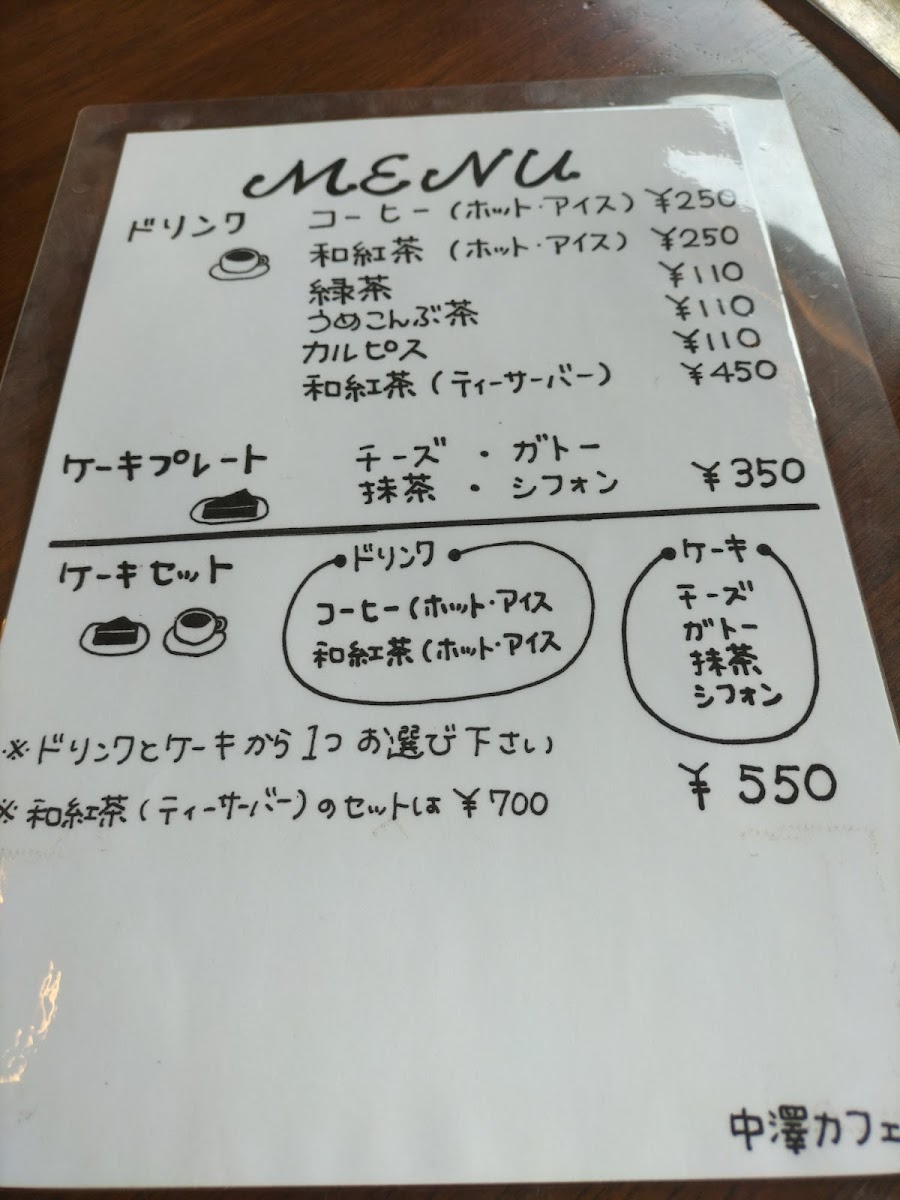 MENU
ドリンク
コーヒー (ホット・アイス) ¥250
和紅茶 (ホット・アイス) ¥250
緑茶 ¥110
うめこんぶ茶 ¥110
カルピス ¥110
和紅茶 (ティーサーバー) ¥450
ケーキプレート
チーズ ・ ガトー
抹茶 ・ シフォン ¥350
ケーキセット
ドリンク
コーヒー (ホット・アイス
和紅茶 (ホット・アイス
ケーキ
チーズ
ガトー
抹茶
シフォン
※ドリンクとケーキから1つお選び下さい
¥550
※和紅茶(ティーサーバー)のセットは¥700
中澤カフェ